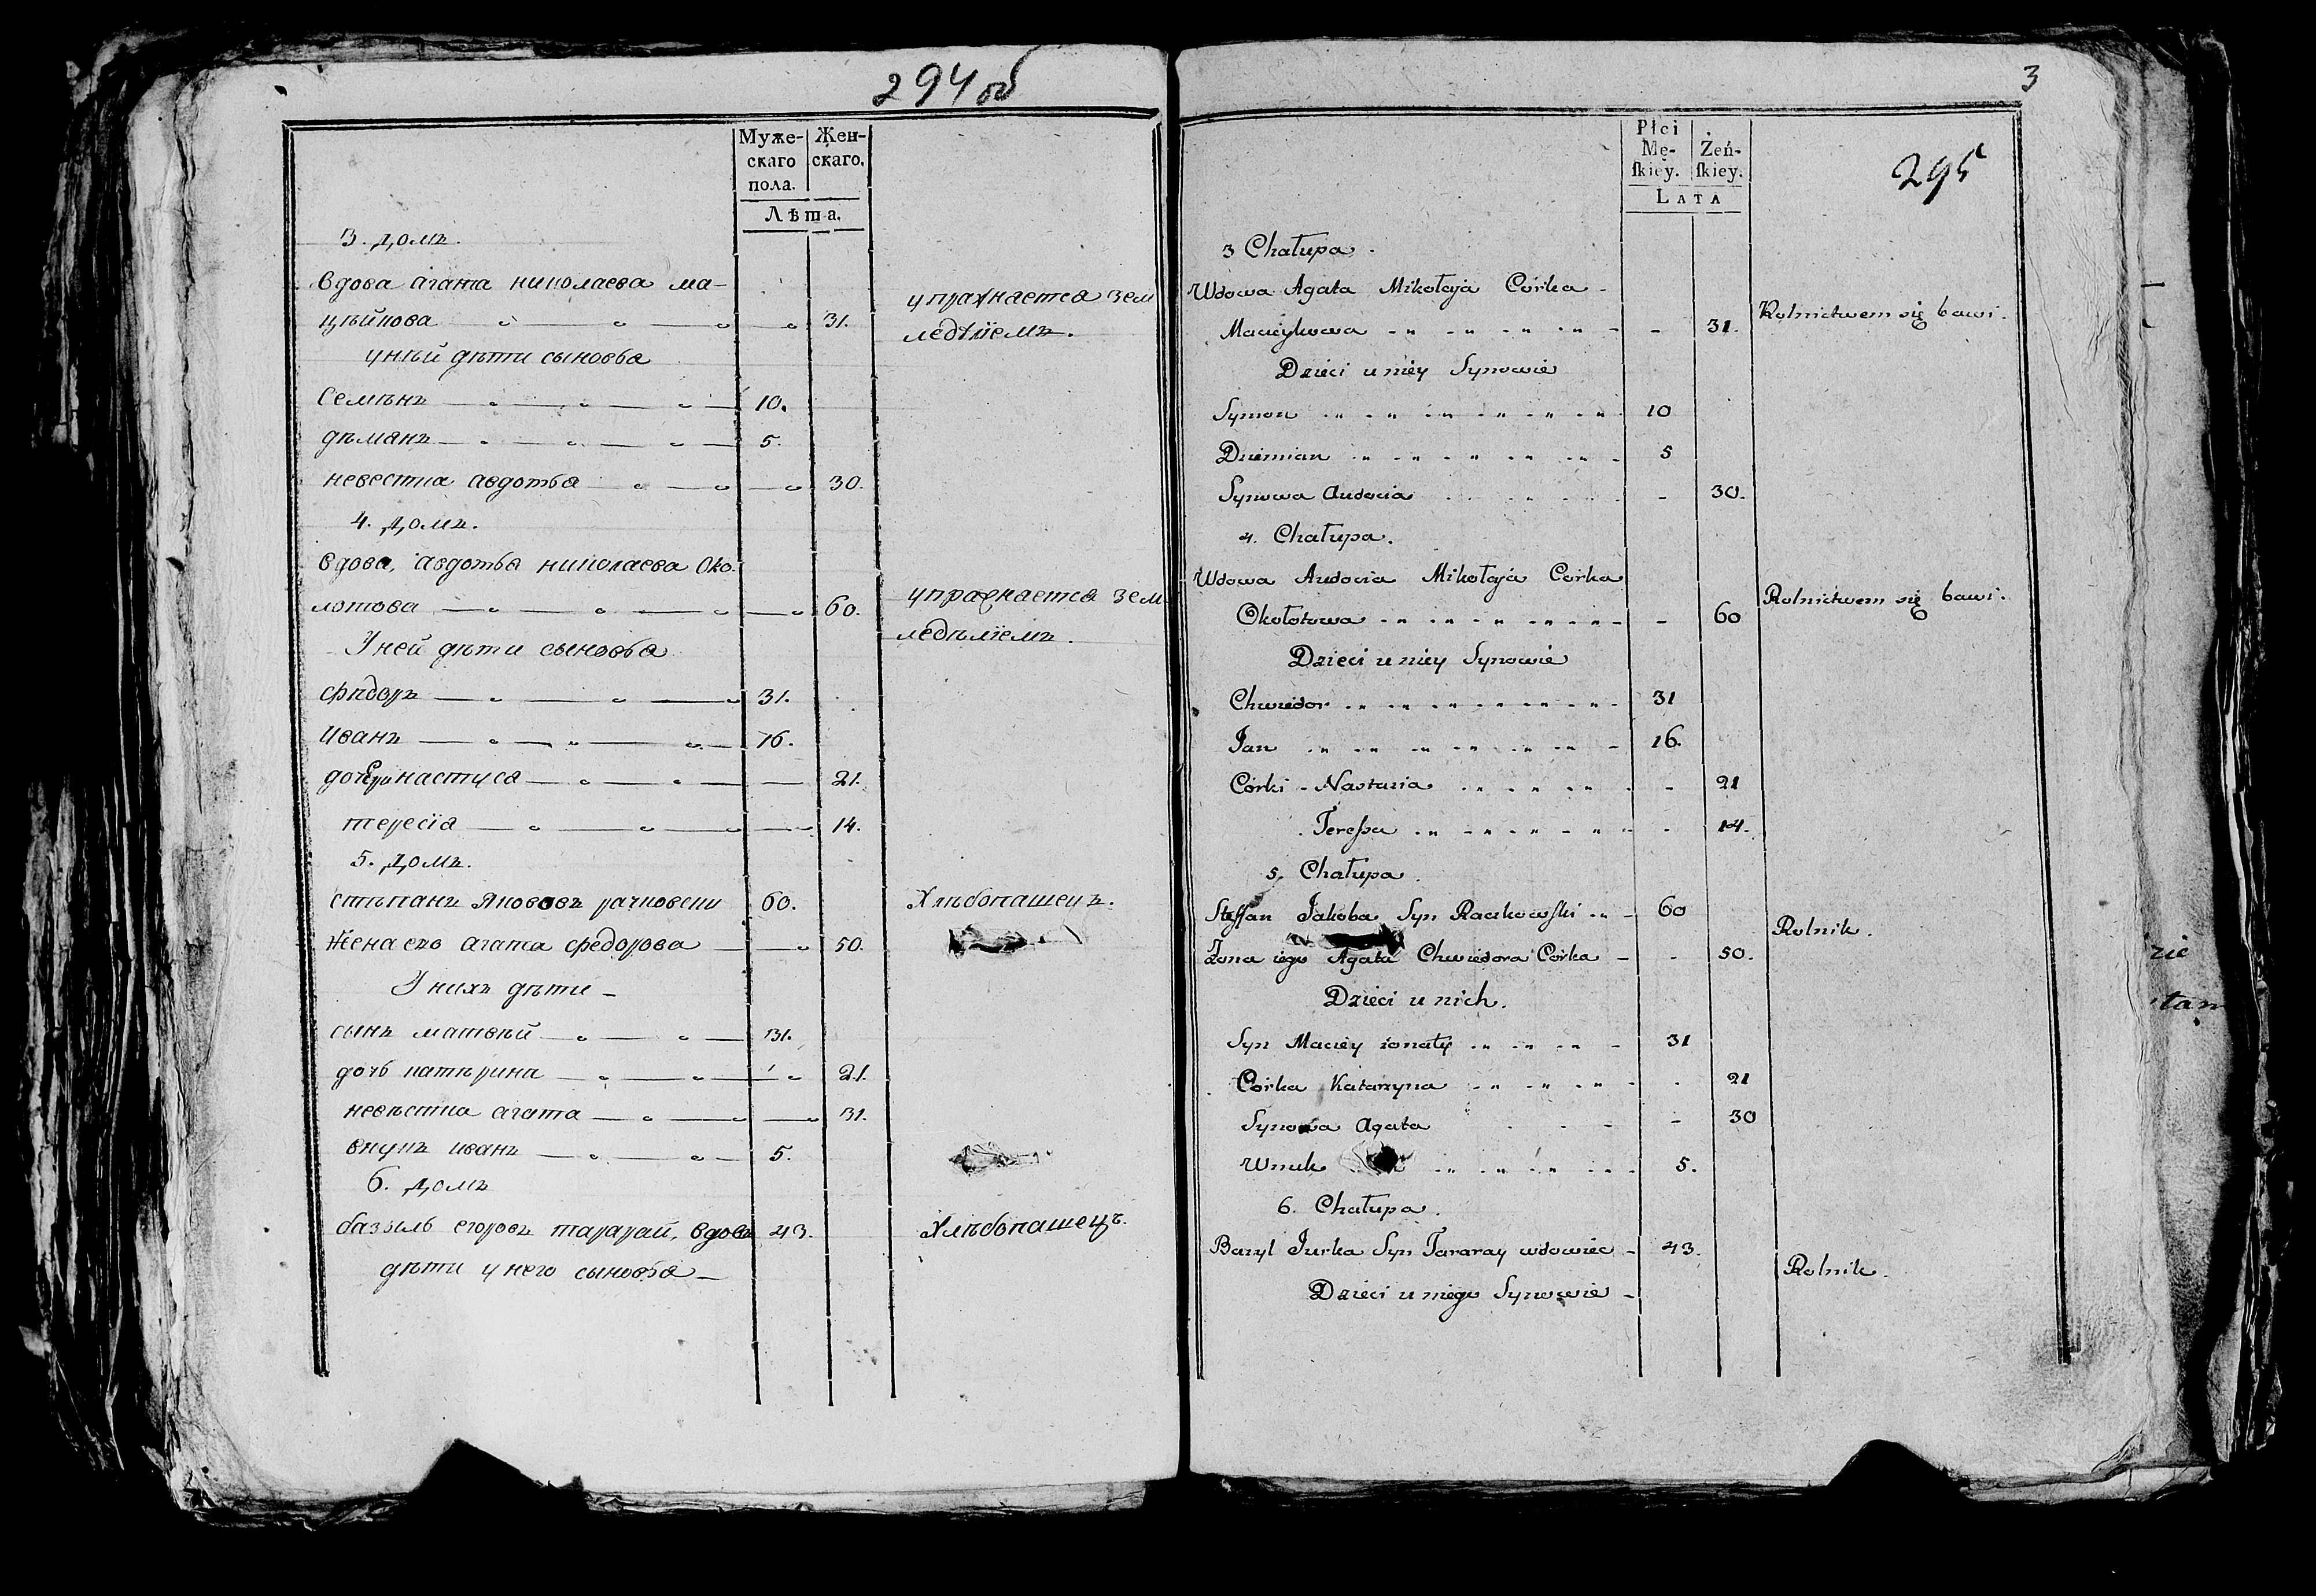 294 об
Муже-
скаго
пола.
Жен-
скаго.
Лѣта.
3. домъ.
вдова агата николаева ма-
цѣйкова 31.
упражнается зем
ледѣлiемъ.
унѣй дѣти сыновья
Семѣнъ 10.
дѣманъ 5.
невестка авдотья 30.
4. домъ.
вдова, авдотья николаева Око-
лотова 60.
упражнается зем
ледѣлiемъ.
У ней дѣти сыновья
Фѣдоръ 31.
Иванъ 16.
дочери настуся 21.
тересiя 14.
5. домъ.
стѣпанъ яковвъ рачковски 60.
Хлѣбопашецъ.
жена его агата федорова 50.
У нихъ дѣти -
сынъ матвѣй 31.
дочь катѣрина 21.
невѣстка агата 31.
внукъ иванъ 5.
6. домъ
базыль егоровъ тарарай, вдовъ 43.
Хлѣбопашецъ.
дѣти у него сыновья -
3
295
Płci
Mę-
ſkiey.
Żeń-
ſkiey.
LATA
3 Chałupa.
Wdowa Agata Mikołaja Córka -
Macieykowa - 31.
Rolnictwem się bawi.
Dzieci u niey Synowie
Symon 10
Dziemian 5
Synowa Audocia - 30.
4. Chałupa.
Wdowa Audocia Mikołaja Corka
Okołotowa - 60
Rolnictwem się bawi.
Dzieci u niey Synowie
Chwiedor 31
Jan 16.
Córki - Nastazia - 21
Tereſsa - 14.
5. Chałupa.
Steffan Jakóba Syn Raczkowſki 60
Rolnik.
Żona iego Agata Chwiedora Córka - - 50.
Dzieci u nich.
Syn Maciey żonaty 31
Córka Katarzyna - 21
Synowa Agata - 30
Wnuk 5.
6. Chałupa.
Bazyl Jurka Syn Tararay wdowiec - 43.
Rolnik.
Dzieci u niego Synowie -